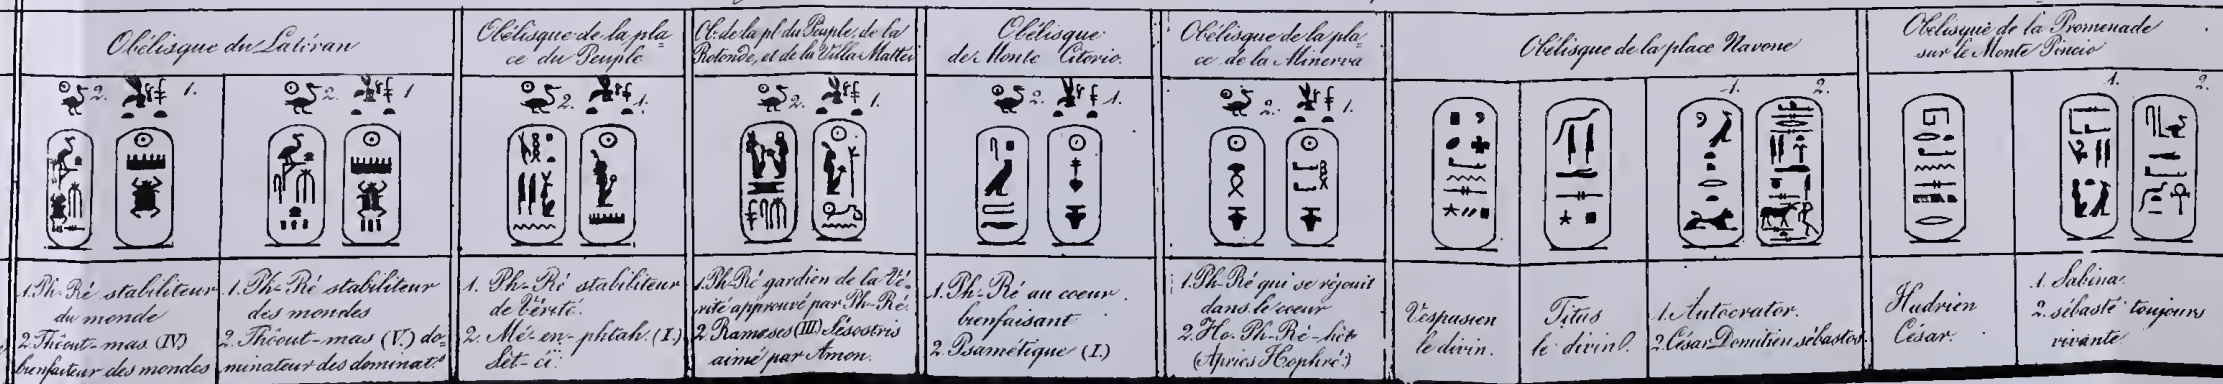 Obélisque du Latéran
2. 1.
2. 1
1. Ph-Ré stabiliteur
du monde
2. Thôout-mas (IV)
bienfaiteur des mondes
1. Ph-Ré stabiliteur
des mondes
2. Thôout-mas (V.) do-
minateur des dominat.
Obélisque de la pla=
ce du Peuple
2. 1.
1. Ph-Ré stabiliteur
de Vérité.
2. Mé-en-phtah. (I.)
Sét-ei.
Ob. de la pl. du Peuple, de la
Rotonde, et de la Villa Mattei
2. 1.
1. Ph-Ré gardien de la Vé-
rité approuvé par Ph-Ré.
2. Ramses (III) Sésostris
aimé par Amon.
Obélisque
de Monte Citorio.
2. 1.
1. Ph-Ré au coeur
bienfaisant
2. Psamétique (I.)
Obélisque de la pla=
ce de la Minerva
2. 1.
1. Ph-Ré qui se réjouit
dans le coeur
2. Ho-Ph-Ré-hèt
(Apriès Hophré.)
Obélisque de la place Navone
1. 2.
Vespasien
le divin.
Titus
le divin
1. Autocrator.
2. César Domitien sébastos
Obélisque de la Promenade
sur le Monte Pincio
1. 2.
Hadrien
César.
1. Sabina.
2. sébasté toujours
vivante.